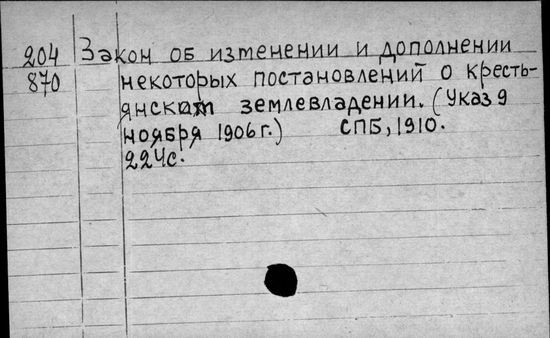 204 Закон об изменении и дополнении
870 некоторых постановлений о кресть-
янском землевладении. (Указ 9
ноября 1906 г.) СПБ, 1910.
224с.